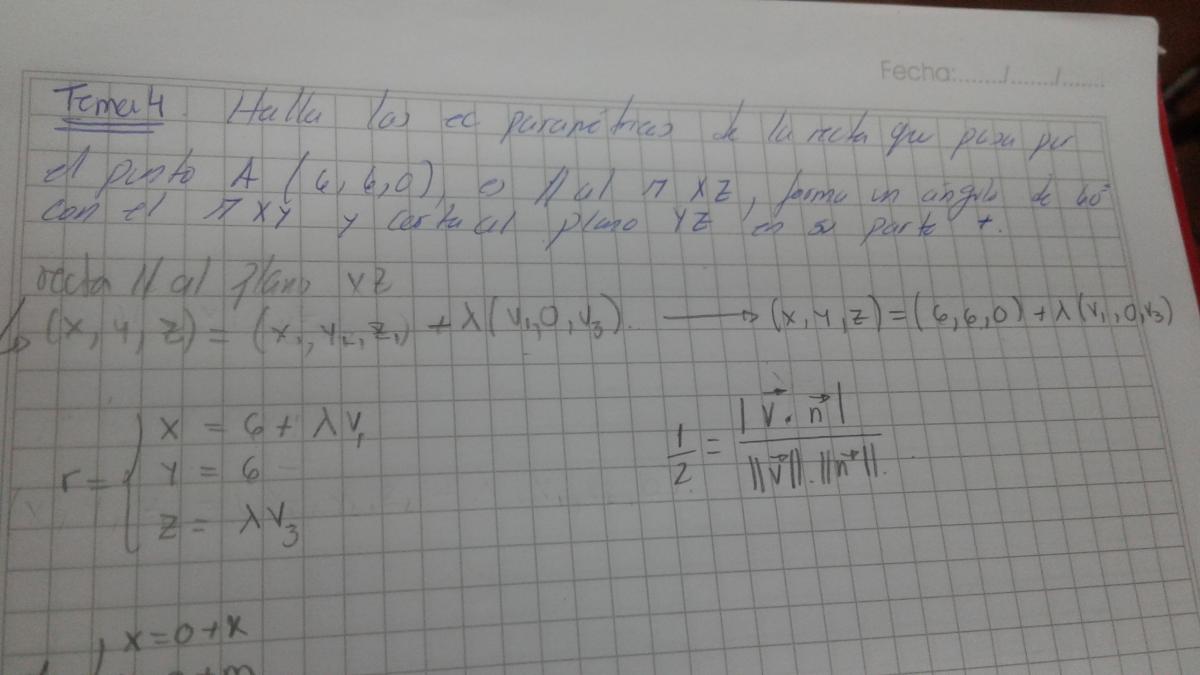 Fecha:....../....../......
Tema 4. Halla las ec paramétricas de la recta que pasa por
el punto A (6, 6, 0), es // al π XZ, forma un ángulo de 60°
con el π XY y corta al plano YZ en su parte +.
recta // al plano XZ
↳ (x, y, z) = (x₁, y₁, z₁) + λ(v₁, 0, v₃). → (x, y, z) = (6, 6, 0) + λ(v₁, 0, v₃)
r = { x = 6 + λv₁
y = 6
z = λv₃
1/2 = |v⃗ . n⃗| / ||v⃗|| . ||n⃗||.
x = 0 + x